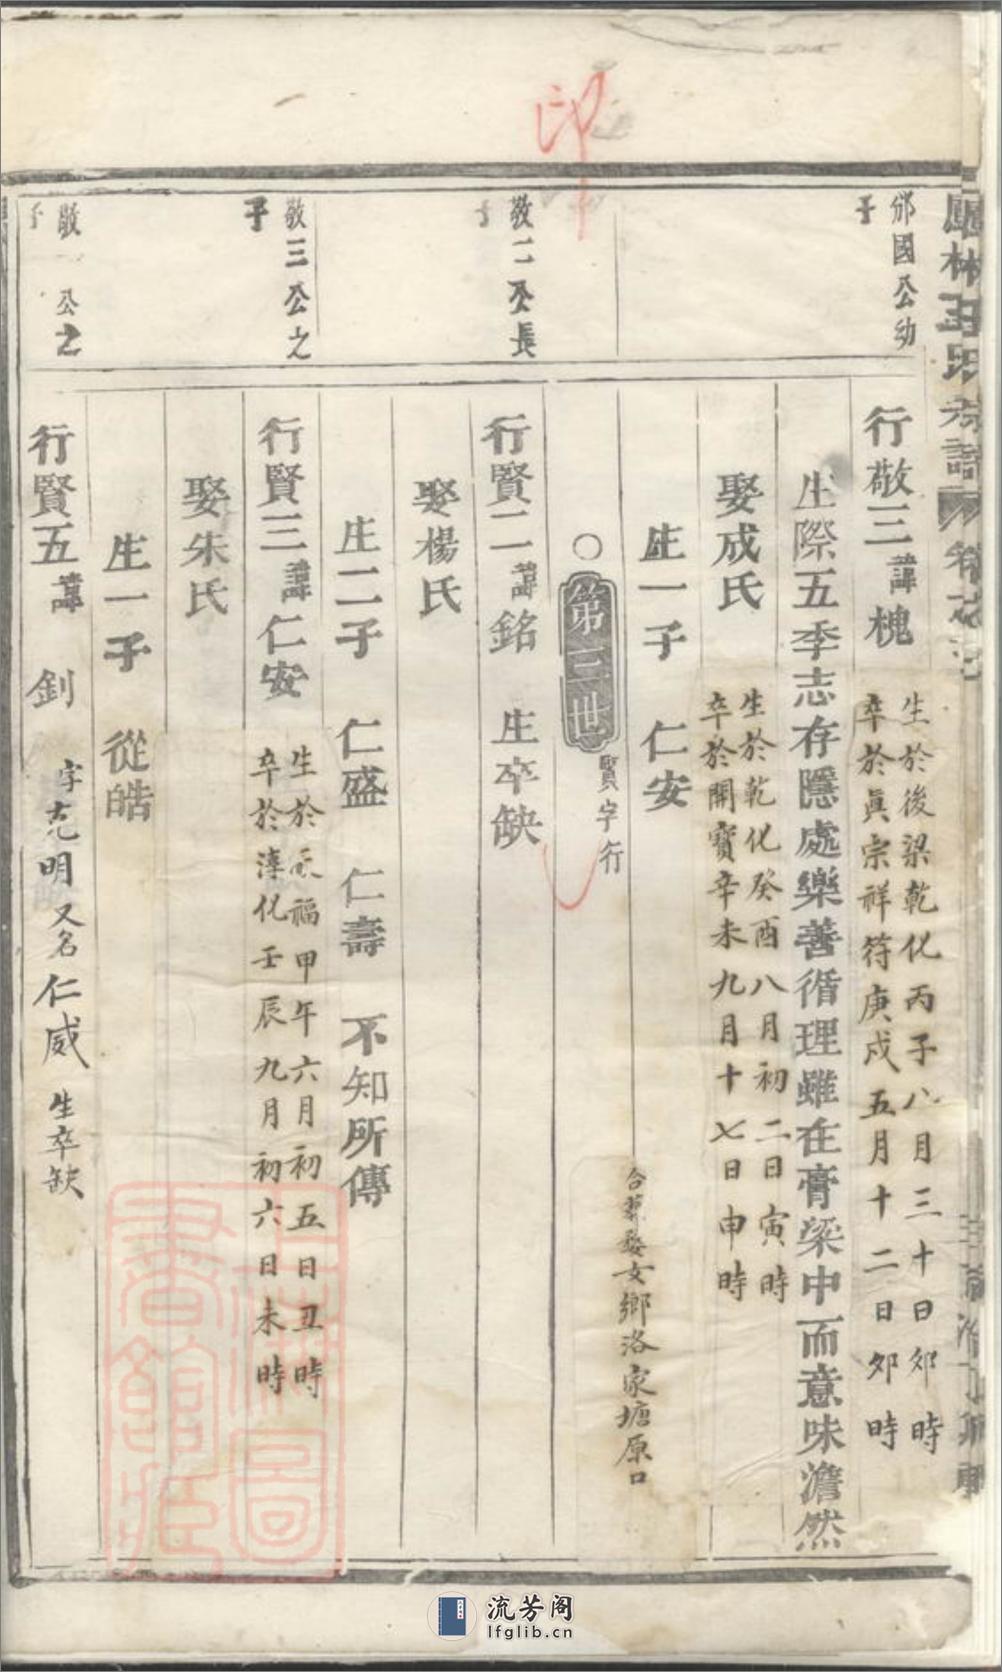 印
鳳林王氏宗譜
邠國公幼子
行敬三諱槐
生於後梁乾化丙子八月三十日卯時
卒於真宗祥符庚戌五月十二日卯時
生際五季志存隱處樂善循理雖在膏粱中而意味澹然
娶成氏
生於乾化癸酉八月初二日寅時
卒於開寶辛未九月十七日申時
生一子 仁安
合葬婺女鄉洛家塘原口
○第三世
賢字行
敬二公長子
行賢二諱銘 生卒缺
娶楊氏
生二子 仁盛 仁壽 不知所傳
敬三公之子
行賢三諱仁安
生於天福甲午六月初五日丑時
卒於淳化壬辰九月初六日未時
娶朱氏
生一子 從皓
敬 公之子
行賢五諱 釗 字克明又名仁威 生卒缺
上海圖書館藏
流芳阁
lfglib.cn